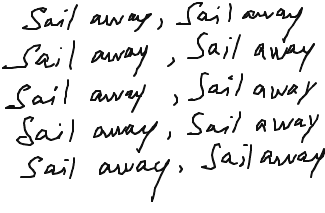 Sail away, Sail away
Sail away, Sail away
Sail away, Sail away
Sail away, Sail away
Sail away, Sail away